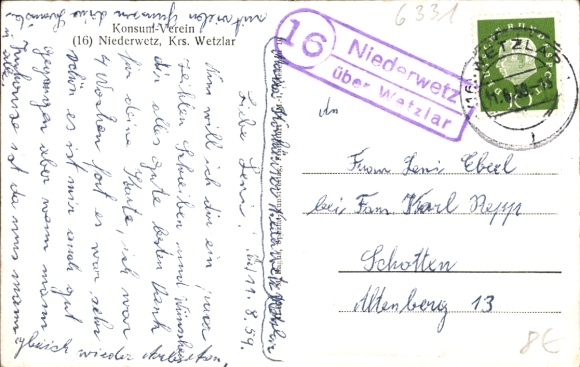 Konsum-Verein
(16) Niederwetz, Krs. Wetzlar
16
Niederwetz
über Wetzlar
6331
WETZLAR
An
Frau Leni Eberl
bei Fam. Karl Repp
Schotten
Altenberg 13
8€
11.8.59.
Liebe Leni!
Nun will ich dir ein paar
Zeilen schreiben und wünsche
dir alles gute besten Dank
für deine Karte, ich war
4 Wochen fort es war sehr
schön es ist mir auch gut
gegangen aber wann mann
Zuhause ist da mus mann
gleich wieder Arbeiten,